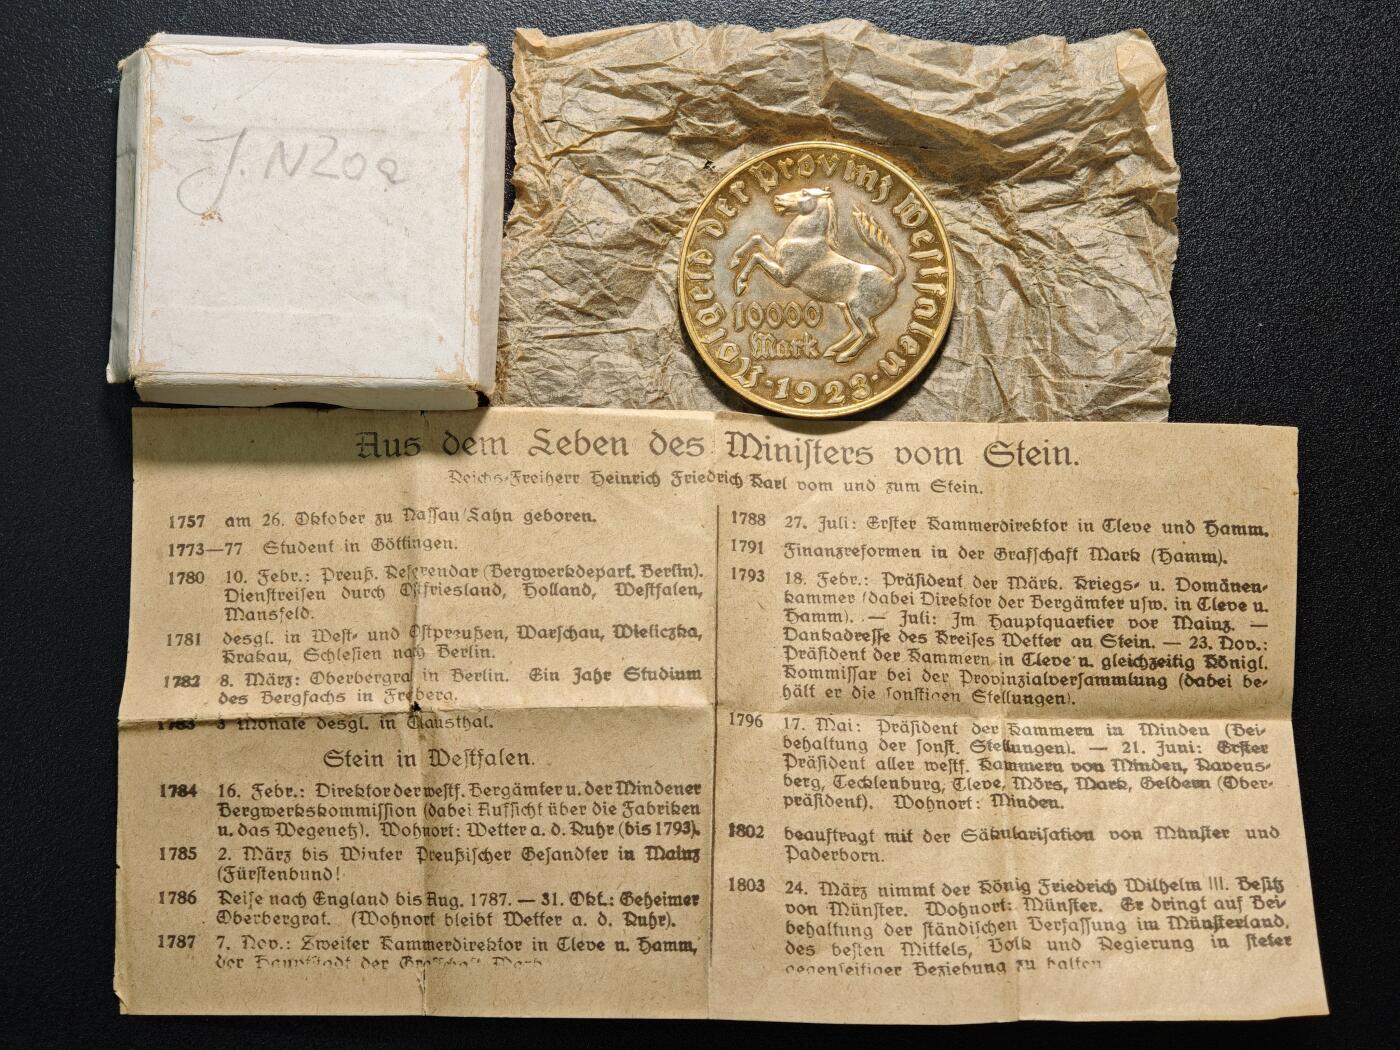 J. N20a
Notgeld der Provinz Westfalen
10000
Mark
·1923·
Aus dem Leben des Ministers vom Stein.
Reichs-Freiherr Heinrich Friedrich Karl vom und zum Stein.
1757 am 26. Oktober zu Nassau/Lahn geboren.
1773—77 Student in Göttingen.
1780 10. Febr.: Preuß. Referendar (Bergwerkdepart. Berlin).
Dienstreisen durch Ostfriesland, Holland, Westfalen,
Mansfeld.
1781 desgl. in West- und Ostpreußen, Warschau, Wieliczka,
Krakau, Schlesien nach Berlin.
1782 8. März: Oberbergrat in Berlin. Ein Jahr Studium
des Bergfachs in Freiberg.
1783 3 Monate desgl. in Clausthal.
Stein in Westfalen.
1784 16. Febr.: Direktor der westf. Bergämter u. der Mindener
Bergwerkskommission (dabei Aufsicht über die Fabriken
u. das Wegenetz). Wohnort: Wetter a. d. Ruhr (bis 1793).
1785 2. März bis Winter Preußischer Gesandter in Mainz
(Fürstenbund!
1786 Reise nach England bis Aug. 1787. — 31. Okt.: Geheimer
Oberbergrat. (Wohnort bleibt Wetter a. d. Ruhr).
1787 7. Nov.: Zweiter Kammerdirektor in Cleve u. Hamm,
der Hauptstadt der Grafschaft Mark.
1788 27. Juli: Erster Kammerdirektor in Cleve und Hamm.
1791 Finanzreformen in der Grafschaft Mark (Hamm).
1793 18. Febr.: Präsident der Märk. Kriegs- u. Domänen-
kammer (dabei Direktor der Bergämter usw. in Cleve u.
Hamm). — Juli: Im Hauptquartier vor Mainz. —
Dankadresse des Kreises Wetter an Stein. — 23. Nov.:
Präsident der Kammern in Cleve u. gleichzeitig Königl.
Kommissar bei der Provinzialversammlung (dabei be-
hält er die sonstigen Stellungen).
1796 17. Mai: Präsident der Kammern in Minden (Bei-
behaltung der sonst. Stellungen). — 21. Juni: Erster
Präsident aller westf. Kammern von Minden, Ravens-
berg, Tecklenburg, Cleve, Mörs, Mark, Geldern (Ober-
präsident). Wohnort: Minden.
1802 beauftragt mit der Säkularisation von Münster und
Paderborn.
1803 24. März nimmt der König Friedrich Wilhelm III. Besitz
von Münster. Wohnort: Münster. Er dringt auf Bei-
behaltung der ständischen Verfassung im Münsterland,
des besten Mittels, Volk und Regierung in steter
gegenseitiger Beziehung zu halten